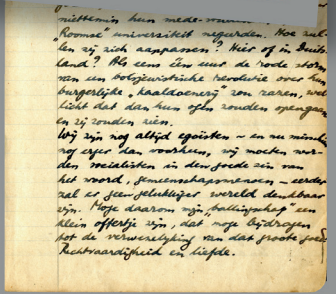 niettemin hun mede-
"Roomse" universiteit negeerden. Hoe zul-
len zij zich aanpassen? Hier of in Duits-
land? Als eens één uur de rode storm
van een bolsjewistische revolutie over hun
burgerlijke "kaaldoenerij" zou razen, wel-
licht dat dan hun ogen zouden opengaan
en zij zouden zien.
Wij zijn nog altijd egoïsten – en nu misschien
nog erger dan voorheen, wij moeten wor-
den socialisten in den goede zin van
het woord, gemeenschapsmensen – eerder
zal er geen gelukkiger wereld denkbaar
zijn. Moge daarom mijn "ballingschap" een
klein offertje zijn, dat moge bijdragen
tot de verwezenlijking van dat groote goed
Rechtvaardigheid en liefde.